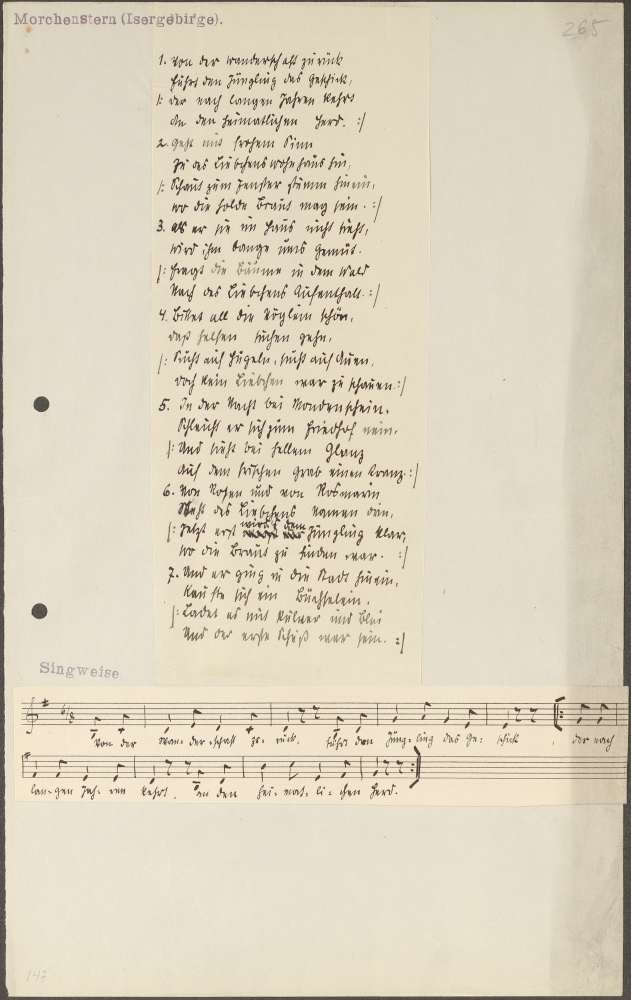 Morchenstern (Isergebirge).
265
1. Von der Wanderschaft zurück
führt den Jüngling das Geschick,
/: der nach langen Jahren kehrt
An den heimatlichen Herd. :/
2. Geht mit frohem Sinn
Zu des Liebchens Wohnhaus hin,
/: Schaut zum Fenster stumm hinein,
wo die holde Braut mag sein. :/
3. als er sie im Haus nicht sieht,
wird ihm bange ums Gemüt.
/: Fragt die Bäume in dem Wald
Nach des Liebchens Aufenthalt. :/
4. Bittet all die Vöglein schön,
daß helfen suchen gehn,
/: Sucht auf Hügeln, sucht auf Auen,
doch kein Liebchen war zu schauen. :/
5. In der Nacht bei Mondenschein,
Schleicht er sich zum Friedhof nein.
/: Und sieht bei hellem Glanz
Auf dem frischen Grab einen Kranz. :/
6. Von Rosen und von Rosmarin
Steht des Liebchens Namen drin,
/: Jetzt erst wird's dem Jüngling klar,
wo die Braut zu finden war. :/
7. Und er ging in die Stadt hinein,
Kaufte sich ein Büchselein.
/: Ladet es mit Pulver und Blei
Und der erste Schuß war sein. :/
Singweise
6/8
Von der Wan- der- schaft zu- rück. führt den Jüng- ling das Ge- schick, der nach
lan- gen Jah- ren kehrt, an den hei- mat- li- chen Herd.
147